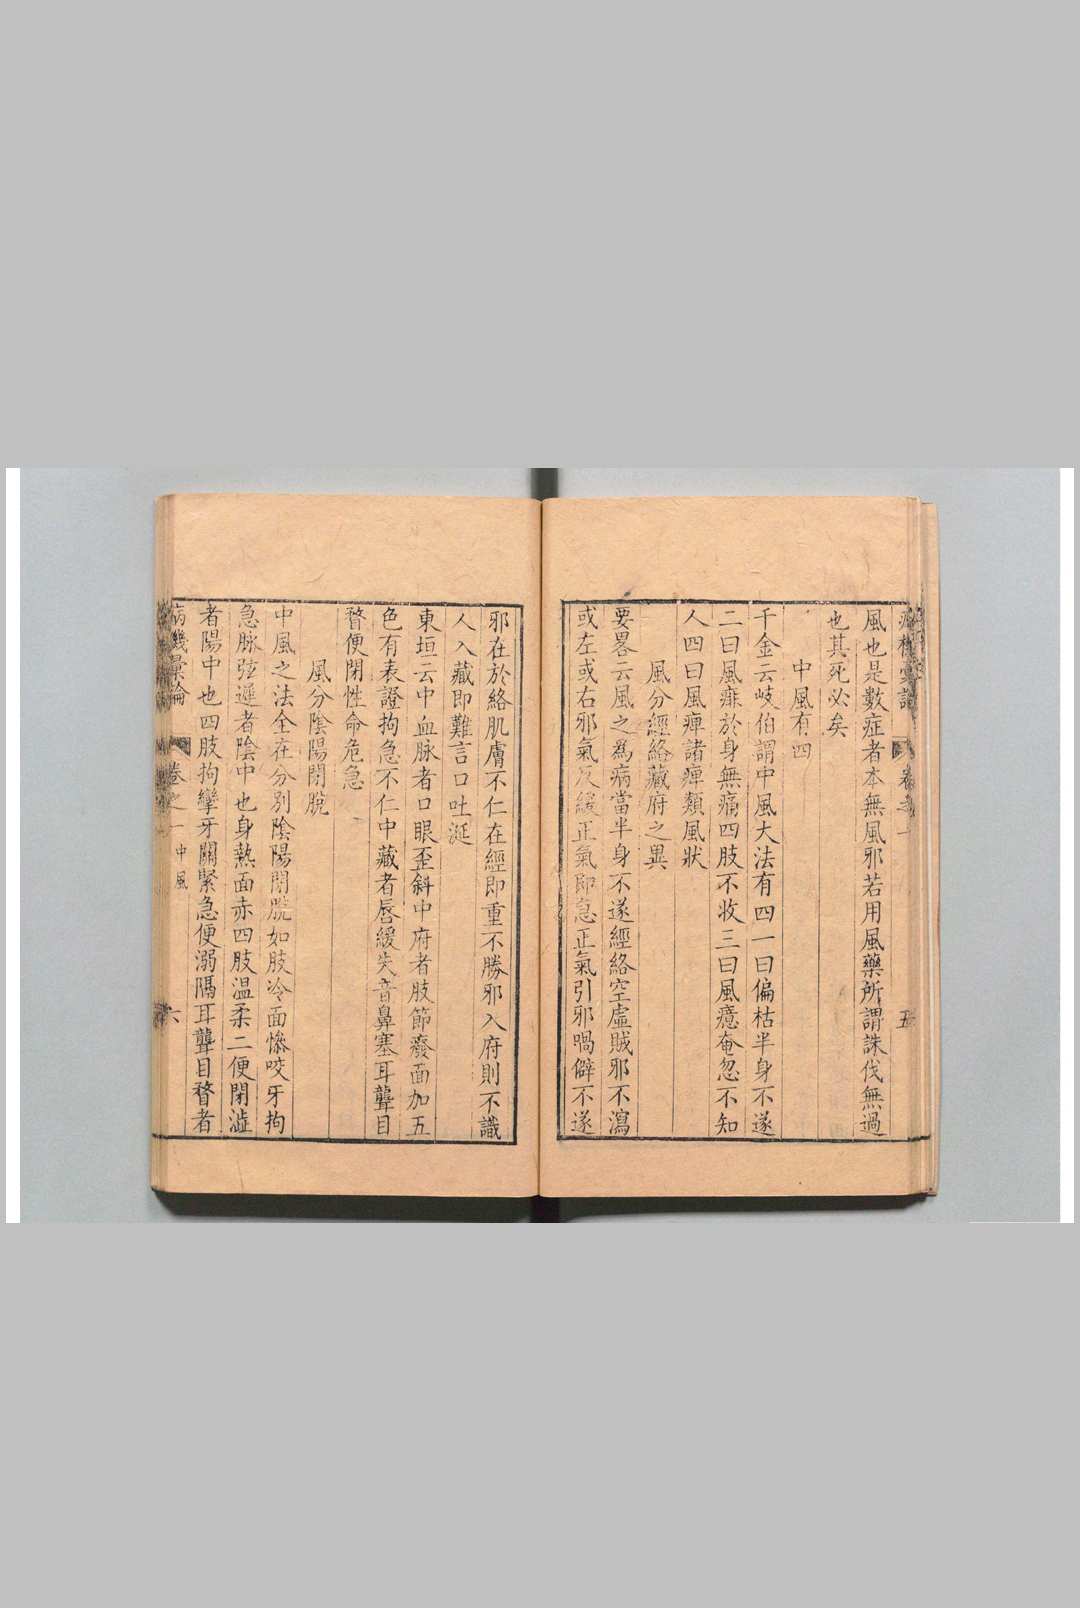 風也是數症者本無風邪若用風藥所謂誅伐無過
也其死必矣
中風有四
千金云岐伯謂中風大法有四一曰偏枯半身不遂
二曰風痱於身無痛四肢不收三曰風癔奄忽不知
人四曰風痺諸痺類風狀
風分經絡藏府之異
要畧云風之為病當半身不遂經絡空虛賊邪不瀉
或左或右邪氣反緩正氣即急正氣引邪喎僻不遂
邪在於絡肌膚不仁在經即重不勝邪入府則不識
人入藏即難言口吐涎
東垣云中血脉者口眼歪斜中府者肢節癈面加五
色有表證拘急不仁中藏者唇緩失音鼻塞耳聾目
瞀便閉性命危急
風分陰陽閉脫
中風之法全在分別陰陽閉脫如肢冷面慘咬牙拘
急脉弦遲者陰中也身熱面赤四肢温柔二便閉澁
者陽中也四肢拘攣牙關緊急便溺隔耳聾目瞀者
病機彙論 卷之一 中風 六